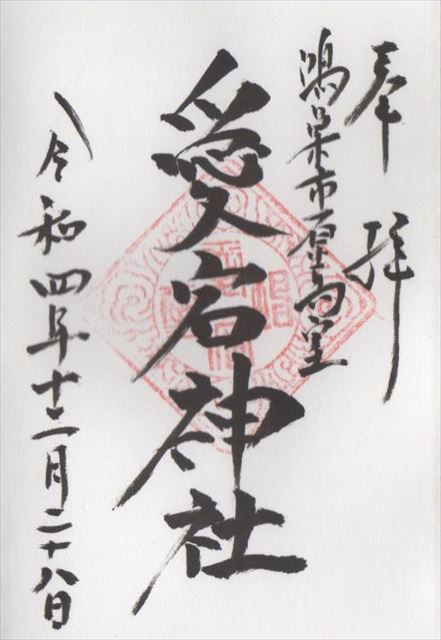 奉拝
鴻巣市原馬室
愛宕神社
令和四年十二月二十八日